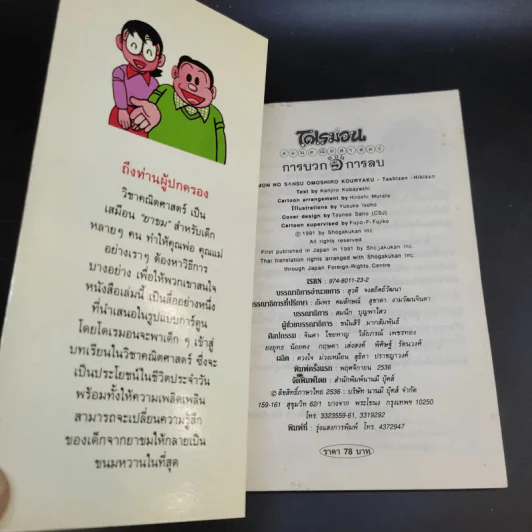 ถึงท่านผู้ปกครอง
วิชาคณิตศาสตร์ เป็น
เสมือน "ยาขม" สำหรับเด็ก
หลายๆ คน ทำให้คุณพ่อ คุณแม่
อย่างเราๆ ต้องหาวิธีการ
บางอย่าง เพื่อให้พวกเขาสนใจ
หนังสือเล่มนี้ เป็นสื่ออย่างหนึ่ง
ที่นำเสนอในรูปแบบการ์ตูน
โดยโดเรมอนจะพาเด็ก ๆ เข้าสู่
บทเรียนในวิชาคณิตศาสตร์ ซึ่งจะ
เป็นประโยชน์ในชีวิตประจำวัน
พร้อมทั้งให้ความเพลิดเพลิน
สามารถจะเปลี่ยนความรู้สึก
ของเด็กจากยาขมให้กลายเป็น
ขนมหวานในที่สุด
โดเรมอน
สอนคณิตศาสตร์
การบวก การลบ
MON NO SANSU OMOSHIRO KOURYAKU - Tashizan - Hikizan
Text by Kenjiro Kobayashi
Cartoon arrangement by Hiroshi Murata
Illustrations by Yusuke Isoho
Cover design by Tsuneo Sano (CSJ)
Cartoon supervised by Fujio-F-Fujiko
© 1991 by Shogakukan Inc.
All rights reserved
First published in Japan in 1991 by Shogakukan Inc.
Thai translation rights arranged with Shogakukan Inc.
through Japan Foreign-Rights Centre
ISBN : 974-8011-23-2
บรรณาธิการอำนวยการ : สุวดี จงสถิตย์วัฒนา
บรรณาธิการที่ปรึกษา : อัมพร คมลักษณ์ สุชาดา งามวัฒนจินดา
บรรณาธิการ : สมนึก บุญพาไสว
ผู้ช่วยบรรณาธิการ : ชนันสิริ มากสัมพันธ์
ศิลปกรรม : จินดา ไชยหาญ วิลัยภรณ์ เพชรทอง
ยงยุทธ น้อยคง กฤษดา เส่งสงค์ พิศิษฐ์ รัตนวงค์
ผลิต : ดวงใจ ม่วงเหมือน สุธิดา ปราชญาวงศ์
พิมพ์ครั้งแรก : พฤศจิกายน 2536
จัดพิมพ์โดย : สำนักพิมพ์นานมี บุ๊คส์
© ลิขสิทธิ์ภาษาไทย 2536 : บริษัท นานมี บุ๊คส์ จำกัด
159-161 สุขุมวิท 62/1 บางจาก พระโขนง กรุงเทพฯ 10250
โทร. 3323559-61, 3319292
พิมพ์ที่ : รุ่งแสงการพิมพ์ โทร. 4372947
ราคา 78 บาท